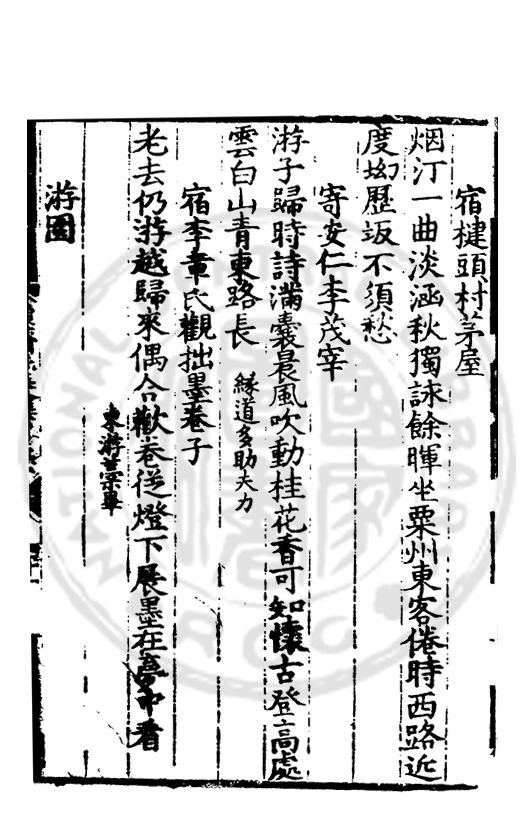 宿楗頭村茅屋
烟汀一曲淡涵秋獨詠餘暉坐粟州東客倦時西路近
度坳歷坂不須愁
寄安仁李茂宰
游子歸時詩滿囊晨風吹動桂花香可知懷古登高處
雲白山青東路長 緣道多助夫力
宿李章氏觀拙墨卷子
老去仍游越歸來偶合歡卷從燈下展墨在夢中看
東游藁畢
游圖